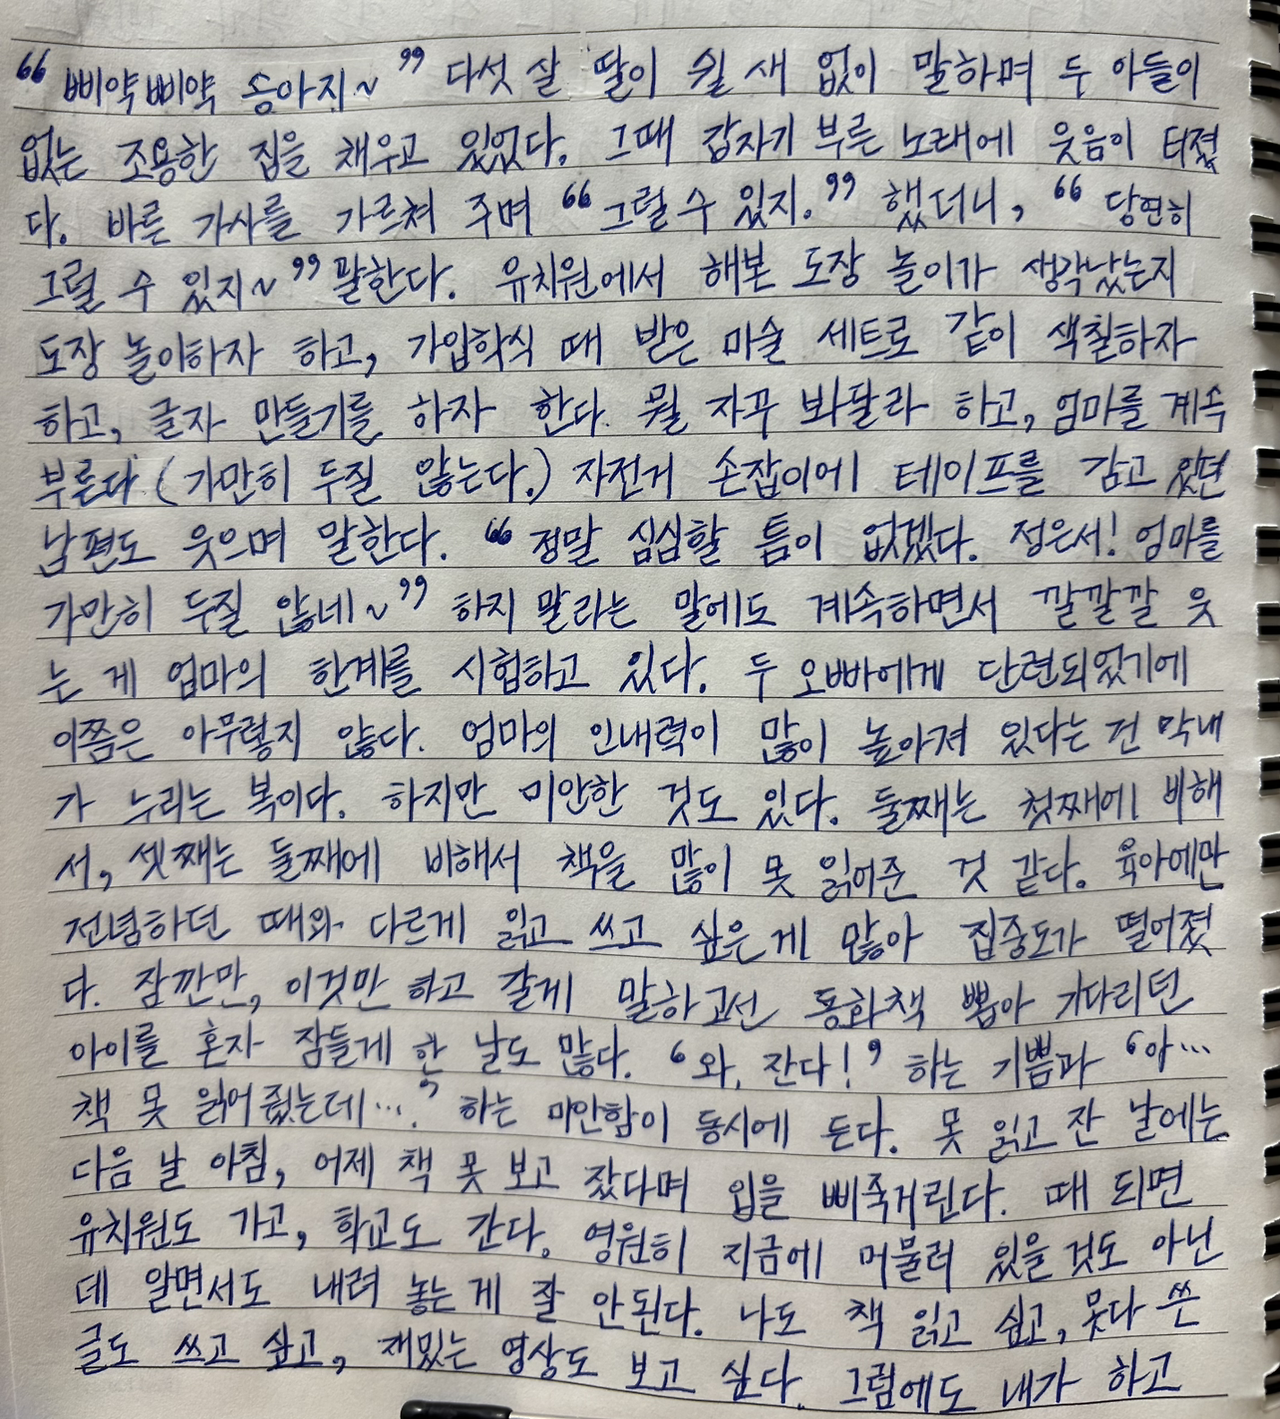 “삐약삐약 송아지~” 다섯 살 딸이 쉴 새 없이 말하며 두 아들이
없는 조용한 집을 채우고 있었다. 그때 갑자기 부른 노래에 웃음이 터졌
다. 바른 가사를 가르쳐 주며 “그럴 수 있지.” 했더니, “당연히
그럴 수 있지~” 말한다. 유치원에서 해본 도장 놀이가 생각났는지
도장 놀이하자 하고, 가입학식 때 받은 미술 세트로 같이 색칠하자
하고, 글자 만들기를 하자 한다. 뭘 자꾸 봐달라 하고, 엄마를 계속
부른다 (가만히 두질 않는다.) 자전거 손잡이에 테이프를 감고 있던
남편도 웃으며 말한다. “정말 심심할 틈이 없겠다. 정은서! 엄마를
가만히 두질 않네~” 하지 말라는 말에도 계속하면서 깔깔깔 웃
는 게 엄마의 한계를 시험하고 있다. 두 오빠에게 단련되었기에
이쯤은 아무렇지 않다. 엄마의 인내력이 많이 높아져 있다는 건 막내
가 누리는 복이다. 하지만 미안한 것도 있다. 둘째는 첫째에 비해
서, 셋째는 둘째에 비해서 책을 많이 못 읽어준 것 같다. 육아에만
전념하던 때와 다르게 읽고 쓰고 싶은 게 많아 집중도가 떨어졌
다. 잠깐만, 이것만 하고 갈게 말하고선 동화책 뽑아 기다리던
아이를 혼자 잠들게 한 날도 많다. ‘와, 잔다!’ 하는 기쁨과 ‘아…
책 못 읽어줬는데….’ 하는 미안함이 동시에 든다. 못 읽고 잔 날에는
다음 날 아침, 어제 책 못 보고 잤다며 입을 삐죽거린다. 때 되면
유치원도 가고, 학교도 간다. 영원히 지금에 머물러 있을 것도 아닌
데 알면서도 내려 놓는 게 잘 안된다. 나도 책 읽고 싶고, 못다 쓴
글도 쓰고 싶고, 재밌는 영상도 보고 싶다. 그럼에도 내가 하고